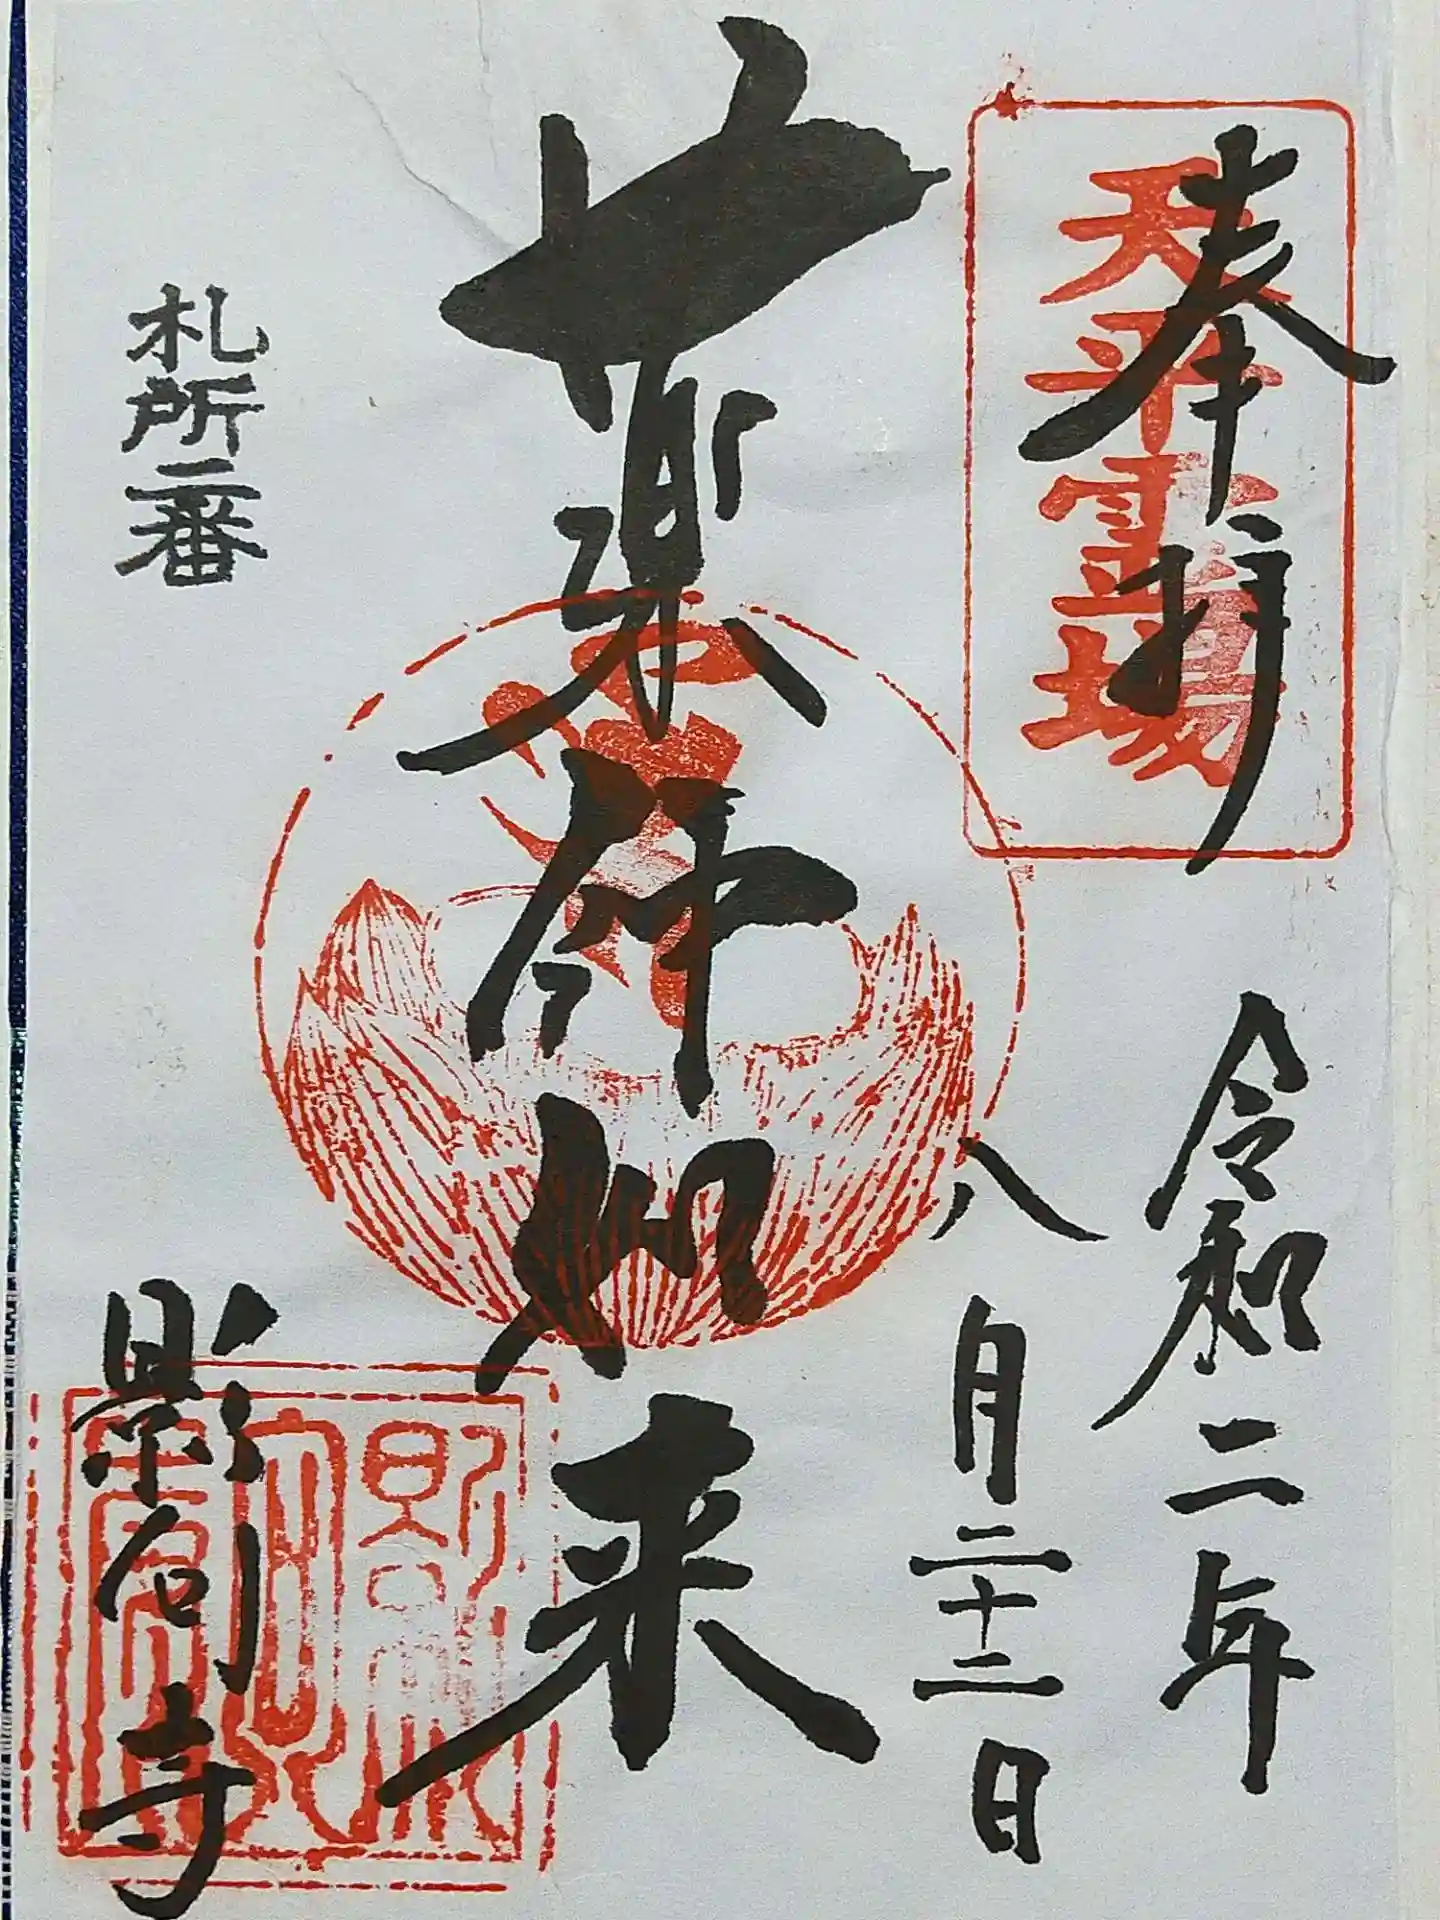 奉拝
天平霊場
令和二年
八月二十二日
薬師如来
札所二番
影向寺